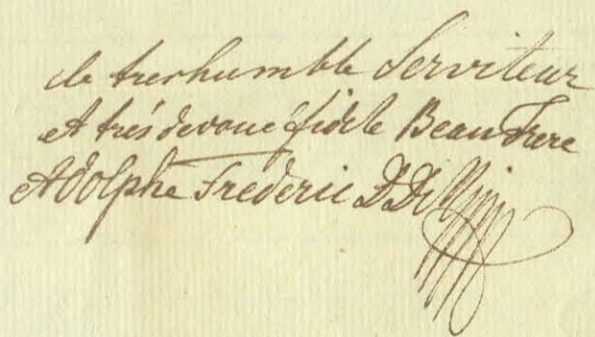 le treshumble Serviteur
et trés devoué fidele Beau Frere
Adolphe Frederic D. D.